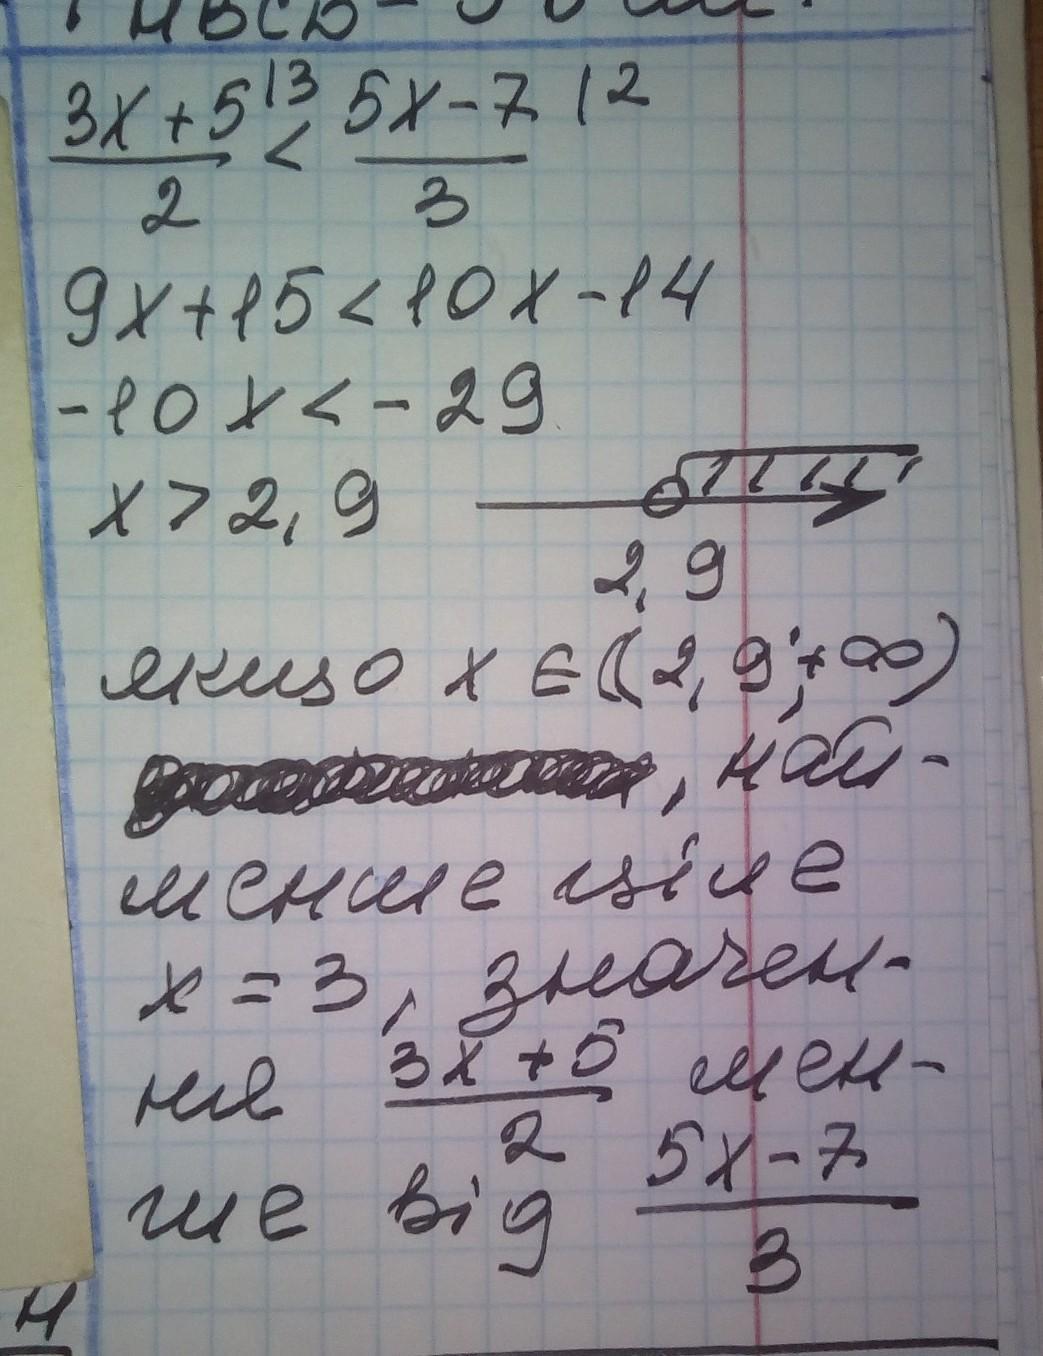 3x+5 |3 < 5x-7 |2
2 3
9x+15<10x-14
-10x<-29
x>2,9
2,9
якщо x є (2,9;+∞)
, най-
менше ціле
x=3, значен-
ня 3x+5 мен-
2
ше від 5x-7
3
н